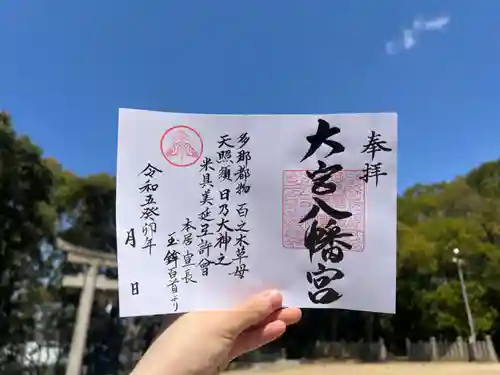 奉拝
大宮八幡宮
多那都物 百之木草母
天照須 日乃大神之
米具美延弖許曾
本居宣長
玉鉾百首より
令和五癸卯年
月
日